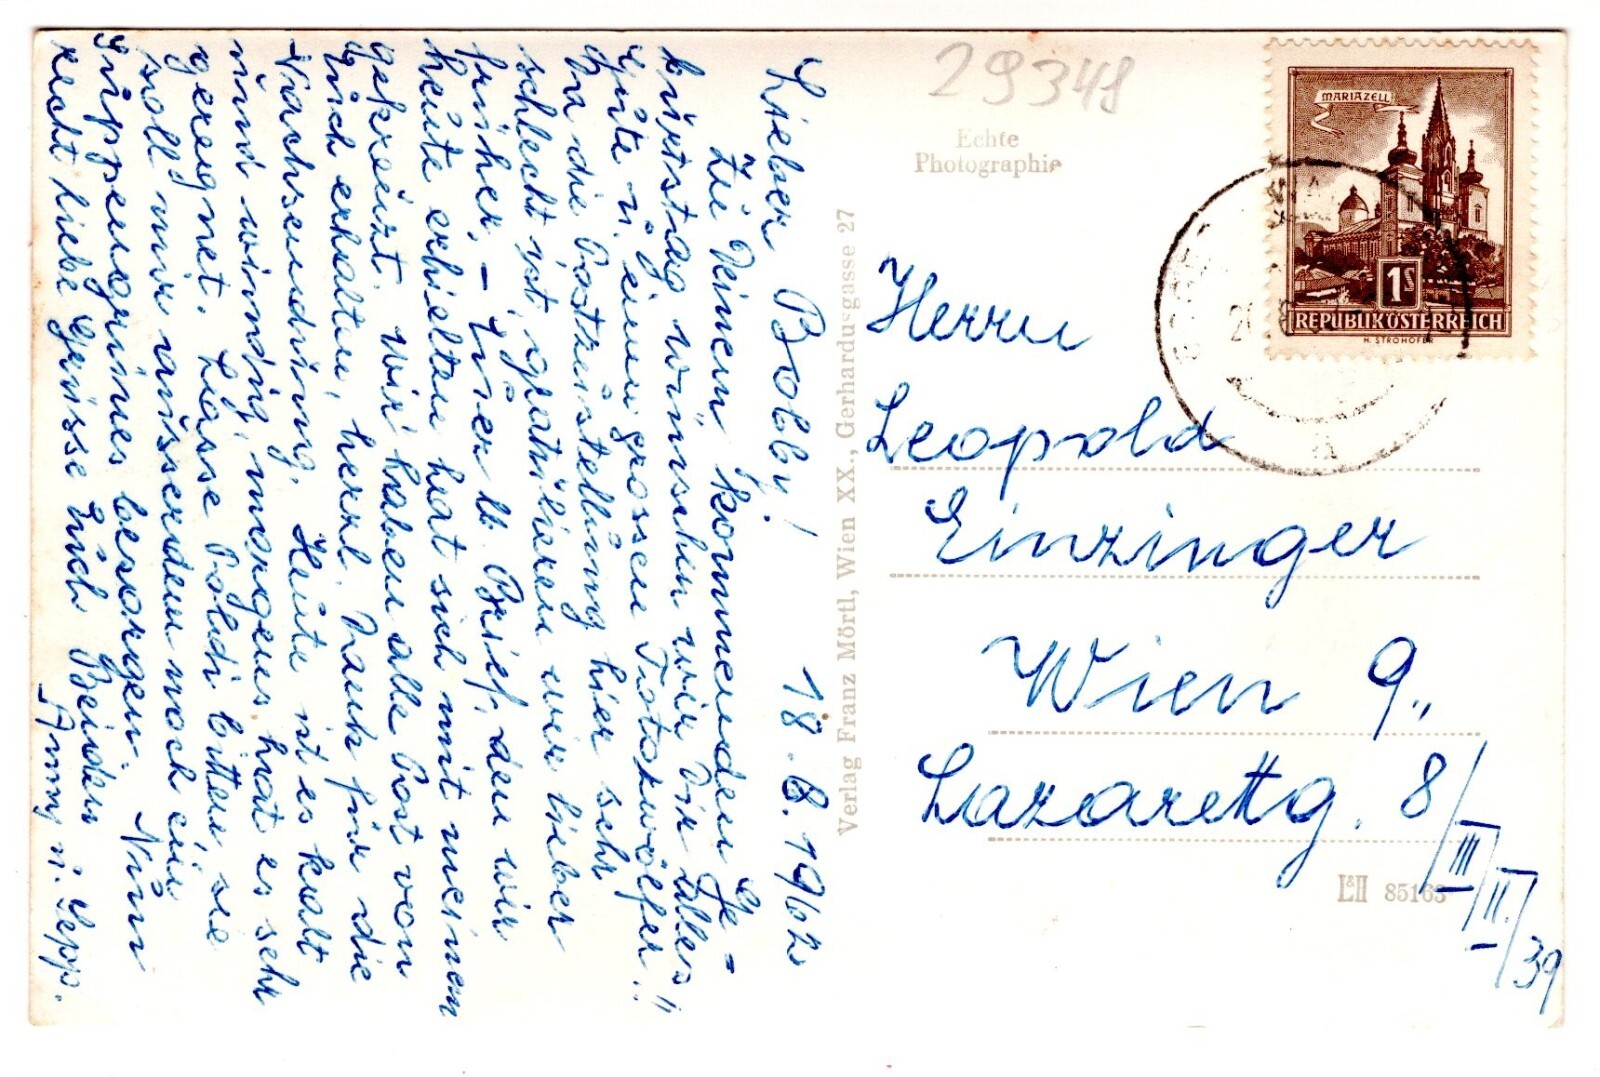 Lieber Bobby! 18.8.1962
Zu Deinem kommenden Ge-
burtstag wünschen wir Dir alles
Gute u. einen grossen Totozwölfer!!
Da die Postzustellung hier sehr
schlecht ist, gratulieren wir lieber
früher, – Euer lb. Brief, den wir
heute erhielten hat sich mit meinem
gekreuzt. Wir haben alle Post von
Euch erhalten, herzl. Dank für die
Nachsendung. Heute ist es kalt
und windig, morgens hat es sehr
geregnet. Lasse Poldi bitten, sie
soll mir ausserdem noch ein
Suppengrünes besorgen. Nun
recht liebe Grüsse Euch Beiden
Anny u. Sepp.
29348
Echte
Photographie
Verlag Franz Mörtl, Wien XX., Gerhardusgasse 27
MARIAZELL
1S
REPUBLIK ÖSTERREICH
H. STROHOFER
Herrn
Leopold
Einzinger
Wien 9.,
Lazarettg. 8/III/II./39
L&H 85163